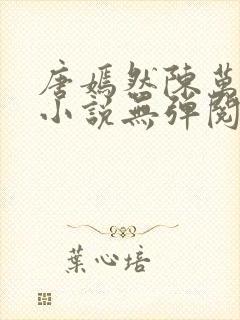 唐嫣然陳萬
小說無彈閱
葉心培